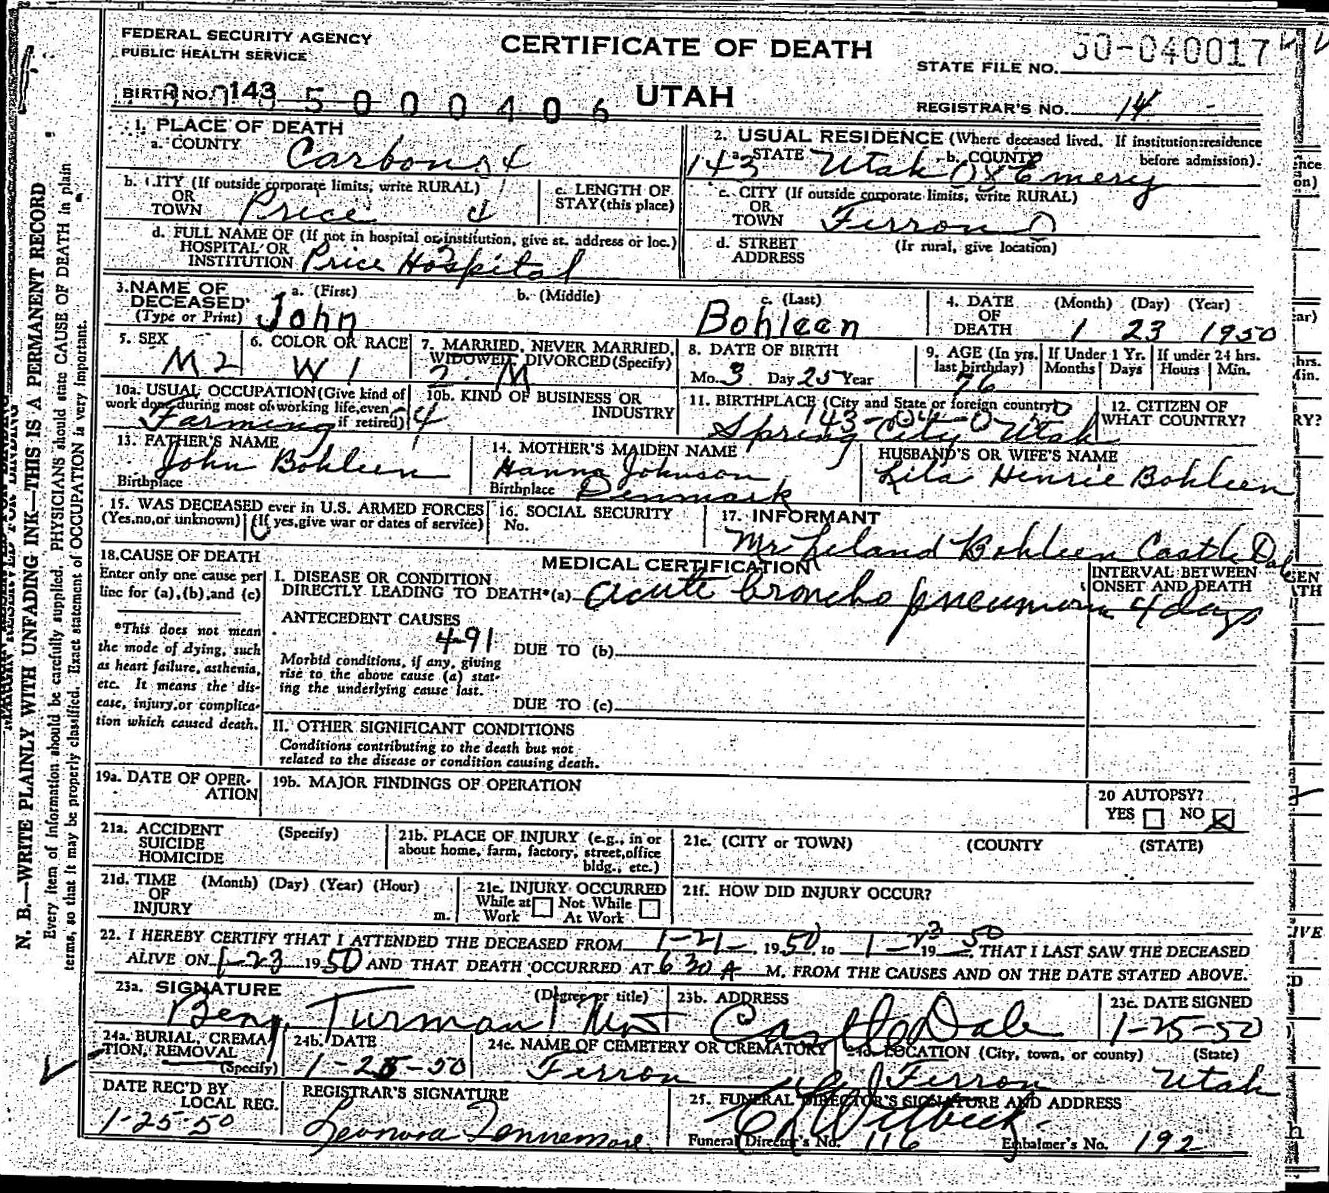 FEDERAL SECURITY AGENCY
PUBLIC HEALTH SERVICE
CERTIFICATE OF DEATH
UTAH
STATE FILE NO. 50-040017
BIRTH NO. 143 5000406
REGISTRAR'S NO. 14
1. PLACE OF DEATH
a. COUNTY Carbon 4
2. USUAL RESIDENCE (Where deceased lived. If institution: residence before admission).
143 a. STATE Utah b. COUNTY 08 Emery
b. CITY (If outside corporate limits, write RURAL) OR TOWN Price 4
c. LENGTH OF STAY (this place)
c. CITY (If outside corporate limits, write RURAL) OR TOWN Ferron 0
d. FULL NAME OF (If not in hospital or institution, give st. address or loc.) HOSPITAL OR INSTITUTION Price Hospital
d. STREET ADDRESS (Ir rural, give location)
3. NAME OF DECEASED (Type or Print)
a. (First) John
b. (Middle)
c. (Last) Bohleen
4. DATE OF DEATH (Month) (Day) (Year) 1 23 1950
5. SEX M 2
6. COLOR OR RACE W 1
7. MARRIED, NEVER MARRIED, WIDOWED, DIVORCED (Specify) 2. M
8. DATE OF BIRTH Mo. 3 Day 25 Year
9. AGE (In yrs. last birthday) 76
If Under 1 Yr. Months Days
If under 24 hrs. Hours Min.
10a. USUAL OCCUPATION (Give kind of work done during most of working life, even if retired) Farming 4
10b. KIND OF BUSINESS OR INDUSTRY
11. BIRTHPLACE (City and State or foreign country)
Spring City Utah
12. CITIZEN OF WHAT COUNTRY?
13. FATHER'S NAME John Bohleen
Birthplace
14. MOTHER'S MAIDEN NAME Hanna Johnson
Birthplace Denmark
HUSBAND'S OR WIFE'S NAME
Lila Henrie Bohleen
15. WAS DECEASED ever in U.S. ARMED FORCES (Yes, no, or unknown) (If yes, give war or dates of service)
16. SOCIAL SECURITY No.
17. INFORMANT
Mr. Leland Bohleen Castle Dale
18. CAUSE OF DEATH
Enter only one cause per line for (a), (b), and (c)
*This does not mean the mode of dying, such as heart failure, asthenia, etc. It means the disease, injury, or complication which caused death.
MEDICAL CERTIFICATION
I. DISEASE OR CONDITION DIRECTLY LEADING TO DEATH*(a) acute broncho pneumonia
INTERVAL BETWEEN ONSET AND DEATH
4 days
ANTECEDENT CAUSES
491
DUE TO (b)
Morbid conditions, if any, giving rise to the above cause (a) stating the underlying cause last.
DUE TO (c)
II. OTHER SIGNIFICANT CONDITIONS
Conditions contributing to the death but not related to the disease or condition causing death.
19a. DATE OF OPERATION
19b. MAJOR FINDINGS OF OPERATION
20 AUTOPSY?
YES NO
21a. ACCIDENT SUICIDE HOMICIDE (Specify)
21b. PLACE OF INJURY (e.g., in or about home, farm, factory, street, office bldg., etc.)
21c. (CITY or TOWN) (COUNTY (STATE)
21d. TIME OF INJURY (Month) (Day) (Year) (Hour) m.
21e. INJURY OCCURRED While at Work Not While At Work
21f. HOW DID INJURY OCCUR?
22. I HEREBY CERTIFY THAT I ATTENDED THE DECEASED FROM 1-21- 1950, to 1-23 1950, THAT I LAST SAW THE DECEASED
ALIVE ON 1-23 1950 AND THAT DEATH OCCURRED AT 630 A M. FROM THE CAUSES AND ON THE DATE STATED ABOVE.
23a. SIGNATURE (Degree or title)
Benj. Turman
23b. ADDRESS
Castle Dale
23c. DATE SIGNED
1-25-50
24a. BURIAL, CREMATION, REMOVAL (Specify)
24b. DATE
1-25-50
24c. NAME OF CEMETERY OR CREMATORY
Ferron
24d. LOCATION (City, town, or county) (State)
Ferron Utah
DATE REC'D BY LOCAL REG.
1-25-50
REGISTRAR'S SIGNATURE
Leonora Fennemore
25. FUNERAL DIRECTOR'S SIGNATURE AND ADDRESS
Witbeck
Funeral Director's No. 116 Embalmer's No. 192
N. B.—WRITE PLAINLY WITH UNFADING INK—THIS IS A PERMANENT RECORD
Every item of information should be carefully supplied. PHYSICIANS should state CAUSE OF DEATH in plain
terms, so that it may be properly classified. Exact statement of OCCUPATION is very important.